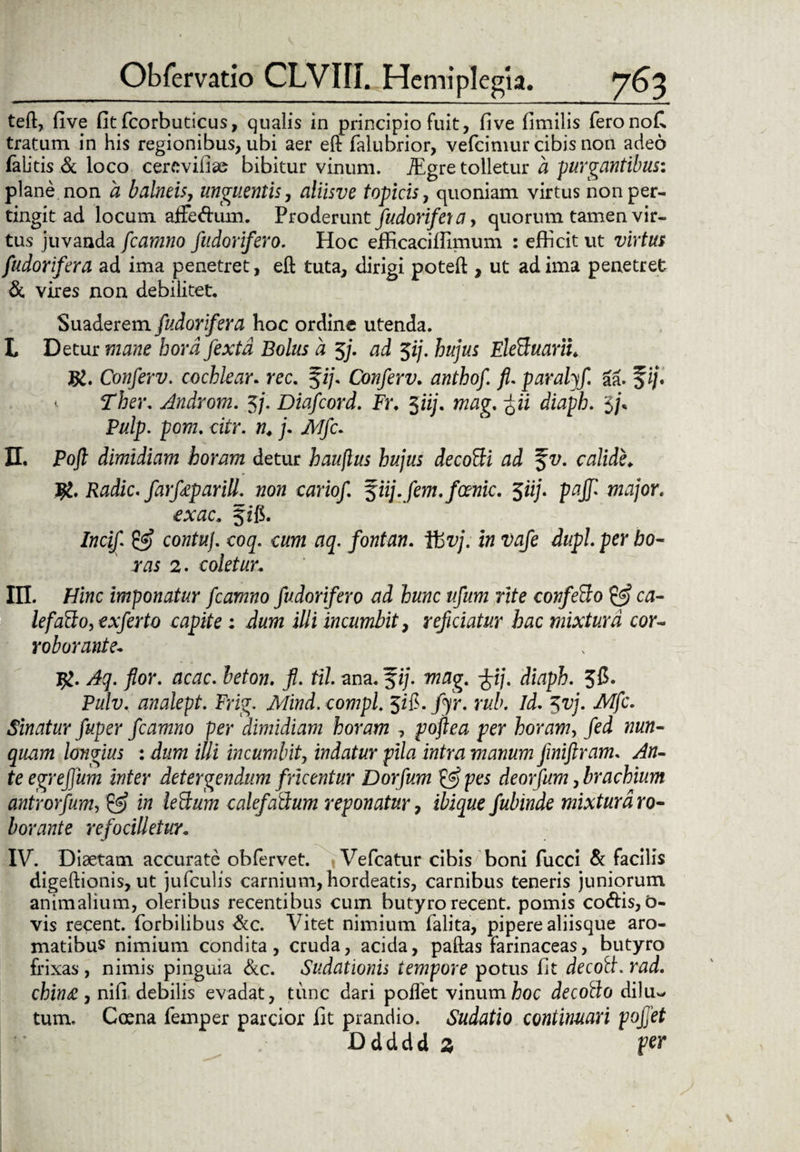 Obſervatio CLVIII. Hemiplegia. 763
teſt, ſive ſit ſcorbuticus, qualis in principio fuit, ſive ſimilis fero noſ-
tratum in his regionibus, ubi aer eſt ſalubrior, veſcimur cibis non adeò
ſalitis & loco cereviſiæ bibitur vinum. Ægre tolletur à purgantibus:
planè non à balneis, unguentis, aliisve topicis, quoniam virtus non per-
tingit ad locum affectum. Proderunt ſudorifera, quorum tamen vir-
tus juvanda ſcamno ſudorifero. Hoc efficaciſſimum : efficit ut virtus
ſudorifera ad ima penetret, eſt tuta, dirigi poteſt , ut ad ima penetret
& vires non debilitet.
Suaderem ſudorifera hoc ordine utenda.
I. Detur mane horâ ſextâ Bolus à ʒj. ad ʒij. hujus Electuarii.
℞. Conſerv. cochlear. rec. ℥ij. Conſerv. anthoſ. fl. paralyſ. āā. ℥ij.
Ther. Androm. ʒj. Diaſcord. Fr. ʒiij. mag. ʒii diaph. ʒj.
Pulp. pom. citr. n. j. Mſc.
II. Poſt dimidiam horam detur hauſtus hujus decocti ad ℥v. calidè.
℞. Radic. ſarſæparill. non carioſ. ℥iij. ſem. fœnic. ʒiij. paſſ. major.
exac. ℥iß.
Inciſ. & contuſ. coq. cum aq. fontan. ℔vj. in vaſe dupl. per ho-
ras 2. coletur.
III. Hinc imponatur ſcamno ſudorifero ad hunc uſum rite confecto & ca-
lefacto, exſerto capite : dum illi incumbit, reficiatur hac mixturâ cor-
roborante.
℞. Aq. flor. acac. beton. fl. til. ana. ℥ij. mag. ʒij. diaph. ʒß.
Pulv. analept. Frig. Mind. compl. ʒiß. ſyr. rub. Id. ʒvj. Mſc.
Sinatur ſuper ſcamno per dimidiam horam , poſtea per horam, ſed nun-
quam longius : dum illi incumbit, indatur pila intra manum ſiniſtram. An-
te egreſſum inter detergendum fricentur Dorſum & pes deorſum, brachium
antrorſum, & in lectum calefactum reponatur, ibique ſubinde mixturâ ro-
borante refocilletur.
IV. Diætam accuratè obſervet. Veſcatur cibis boni ſucci & facilis
digeſtionis, ut juſculis carnium, hordeatis, carnibus teneris juniorum
animalium, oleribus recentibus cum butyro recent. pomis coctis, o-
vis recent. ſorbilibus &c. Vitet nimium ſalita, pipere aliisque aro-
matibus nimium condita , cruda, acida, paſtas farinaceas, butyro
frixas , nimis pinguia &c. Sudationis tempore potus ſit decoct. rad.
chinæ , niſi debilis evadat, tùnc dari poſſet vinum hoc decocto dilu-
tum. Cœna ſemper parcior ſit prandio. Sudatio continuari poſſet
Ddddd 2 per